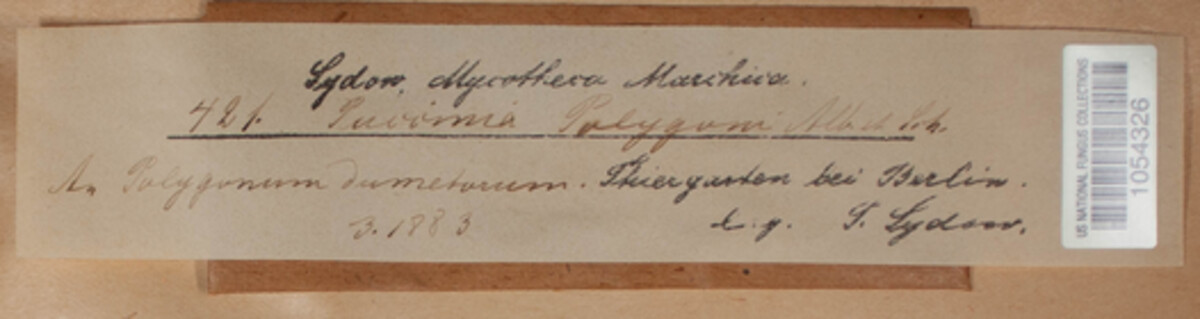 Sydow, Mycotheca Marchica.
421. Puccinia Polygoni Alb et Sch.
An Polygonum dumetorum. Thiergarten bei Berlin.
3. 1883
leg. P. Sydow.
US NATIONAL FUNGUS COLLECTIONS
1054326